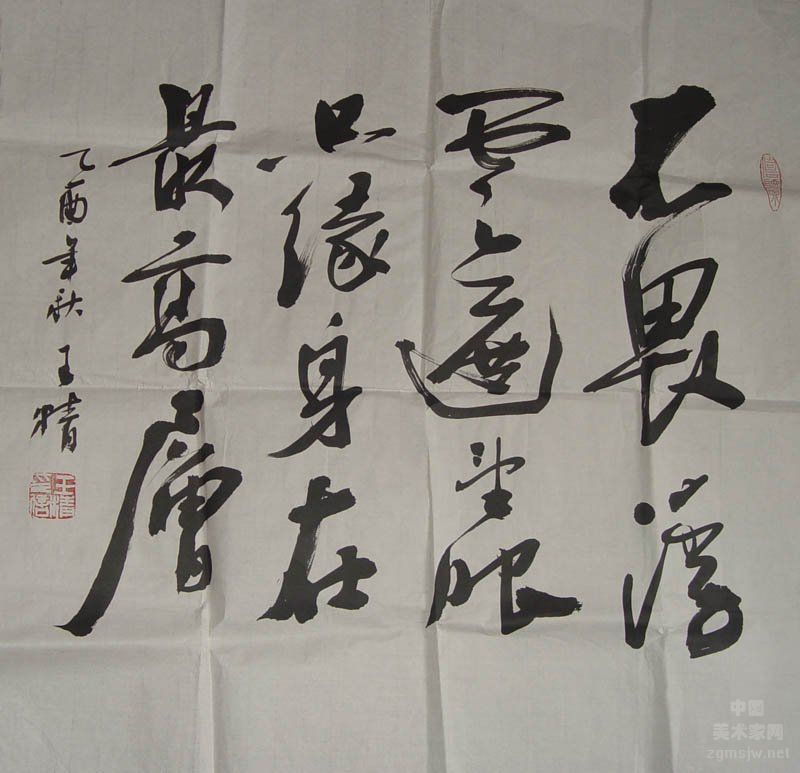 不畏浮
雲遮望眼
只緣身在
最高層
乙酉年秋 王精
中国
美术家网
zgmsjw.net